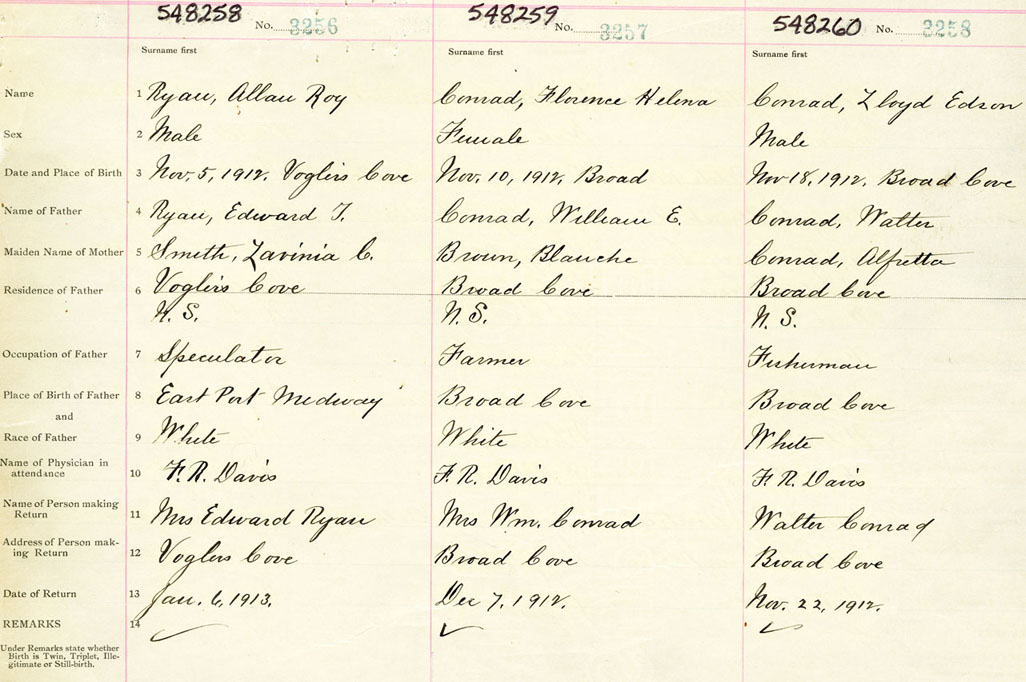 548258 No. 3256 548259 No. 3257 548260 No. 3258
Surname first Surname first Surname first
Name 1 Ryan, Allan Roy Conrad, Florence Helena Conrad, Lloyd Edson
Sex 2 Male Female Male
Date and Place of Birth 3 Nov. 5, 1912. Voglers Cove Nov. 10, 1912, Broad Nov 18, 1912, Broad Cove
Name of Father 4 Ryan, Edward T. Conrad, William E. Conrad, Walter
Maiden Name of Mother 5 Smith, Lavinia C. Brown, Blanche Conrad, Alfretta
Residence of Father 6 Voglers Cove Broad Cove Broad Cove
N. S. N. S. N. S.
Occupation of Father 7 Speculator Farmer Fisherman
Place of Birth of Father 8 East Port Medway Broad Cove Broad Cove
and
Race of Father 9 White White White
Name of Physician in
attendance 10 F. R. Davis F. R. Davis F R. Davis
Name of Person making
Return 11 Mrs Edward Ryan Mrs Wm. Conrad Walter Conrad
Address of Person mak-
ing Return 12 Voglers Cove Broad Cove Broad Cove
Date of Return 13 Jan. 6, 1913. Dec 7, 1912. Nov. 22, 1912.
REMARKS 14
Under Remarks state whether
Birth is Twin, Triplet, Ille-
gitimate or Still-birth.